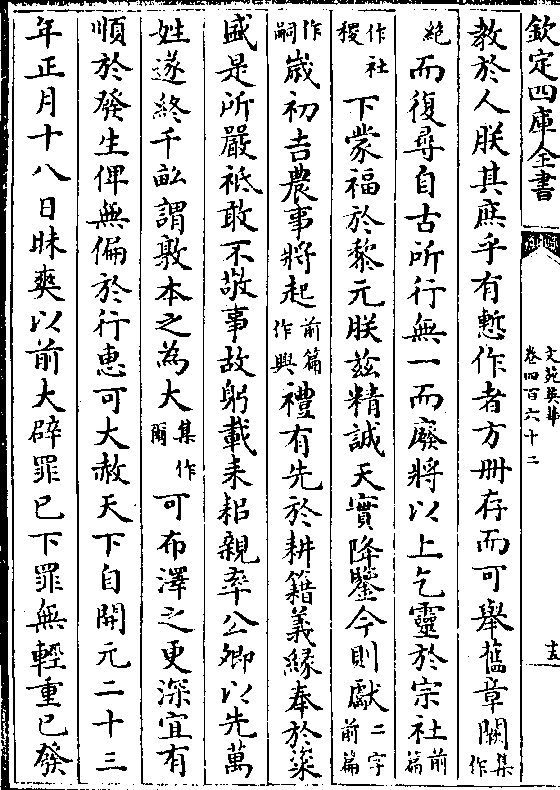 欽定四庫全書
文苑英華
卷四百六十二
教於人朕其庶乎有慙作者方册存而可舉舊章闕集作
絶而復尋自古所行無一而廢將以上乞靈於宗社前篇
作社稷下蒙福於黎元朕兹精誠天實降鑒今則獻二字前篇
作嗣歲初吉農事將起前篇作興禮有先於耕籍義緣奉於粢
盛是所嚴祗敢不敬事故躬載耒耜親率公卿以先萬
姓遂終千畝謂敦本之為大集作爾可布澤之更深宜有
順於發生俾無偏於行惠可大赦天下自開元二十三
年正月十八日昧爽以前大辟罪已下罪無輕重已發